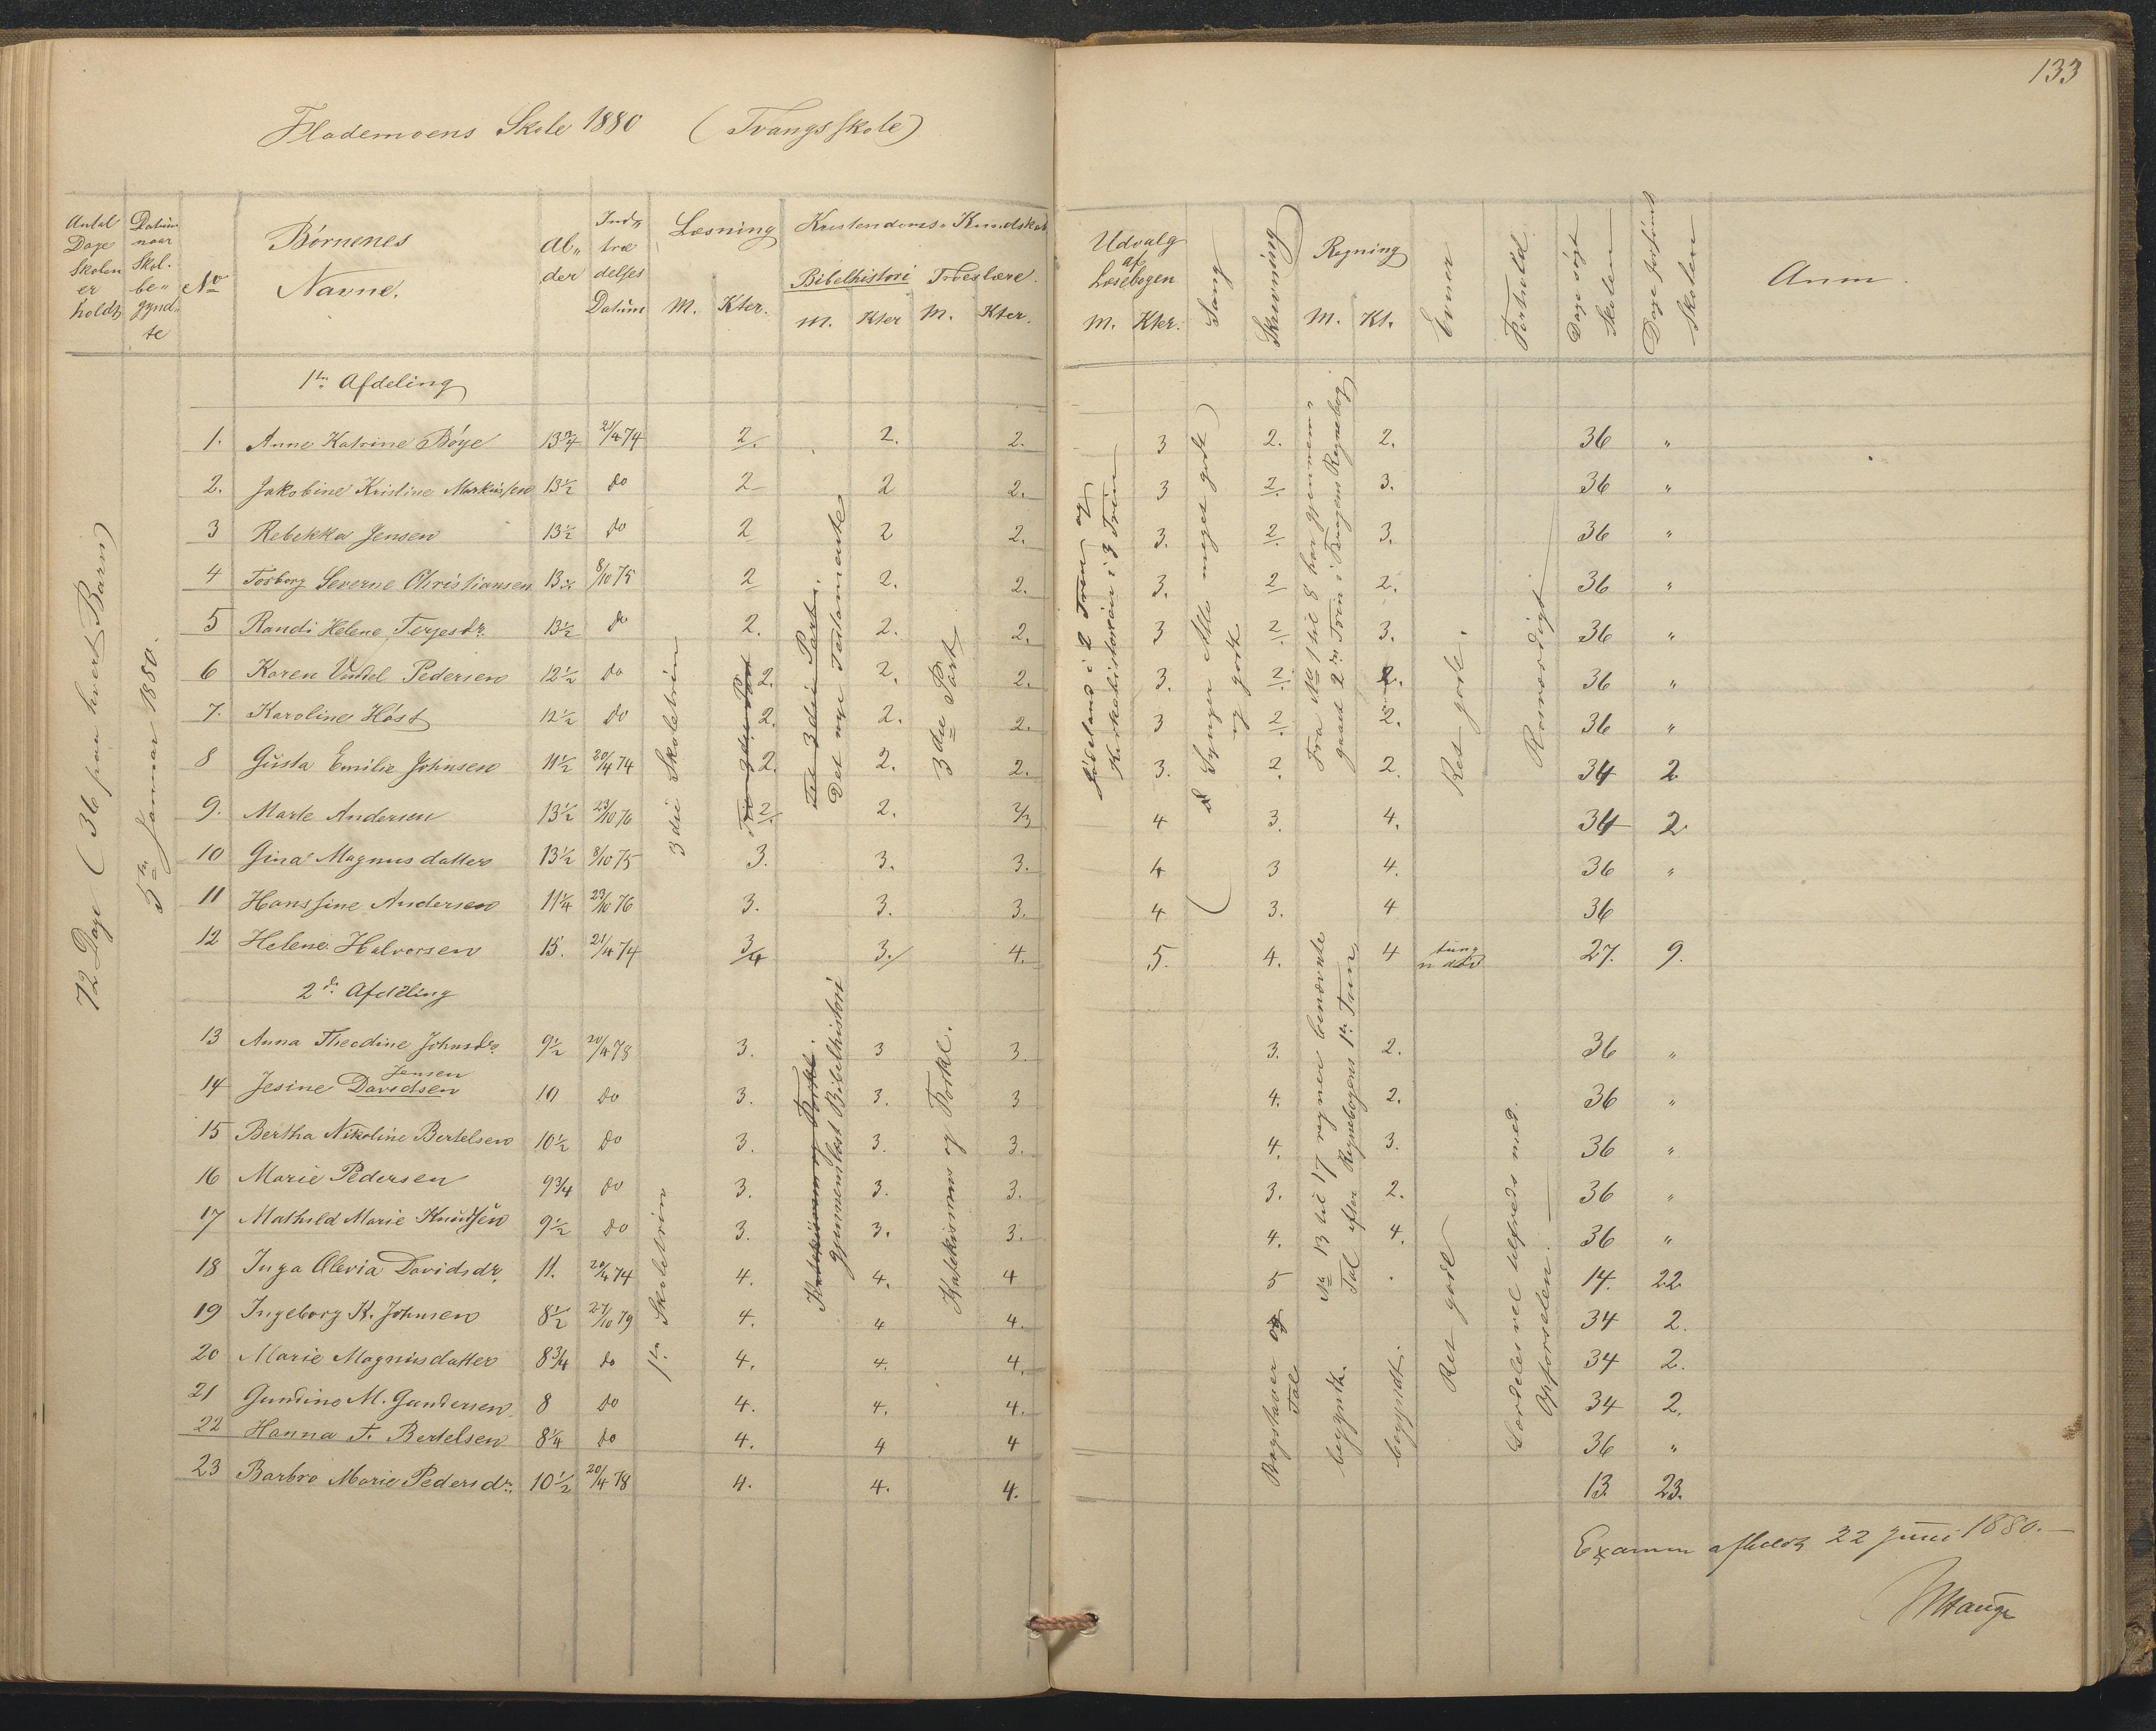 133
Flademoens Skole 1880 (Tvangsskole)
Antal Dage Skolen er holdt
Datum naar Skol. be„ gynd„ te
No
Børnenes Navne.
Al„ der
Ind„ træ delses Datum
Læsning
M. Kter.
Kristendoms„ Kundskab
Bibelhistori
M. Kter
Troeslære.
M. Kter.
Udvalg af Læsebogen
M. Kter.
Sang
Skrivning
Regning
M. Kt.
Evner
Forhold
Dage søgt Skolen
Dage forsömt Skolen
Anm.
72 Dage (36 paa hvert Barn)
5te Januar 1880.
1te Afdeling
1. Anne Katrine Böye 13 3/4 21/4 74 2. 2. 2. 3 2. 2. 36 „
2. Jakobine Kristine Markussen 13 1/2 do 2 2 2. 3 2. 3. 36 „
3 Rebekka Jensen 13 1/2 do 2 2 2. 3. 2. 3. 36 „
4 Torborg Severne Christiansen 13 8/10 75 2 2. 2. 3. 2 2. 36 „
5 Randi Helene Terjesdr. 13 1/2 do 2. 2. 2. 3 2. 3. 36 „
6 Karen Pedersen 12 1/2 do 2. 2. 2. 3. 2. 2. 36 „
7. Karoline Höst 12 1/2 do 2. 2. 2. 3 2. 2. 36 „
8 Gusta Emilie Johnsen 11 1/2 20/4 74 2. 2. 2. 3. 2. 2. 34 2
9. Marte Andersen 13 1/2 23/10 76 2. 2. 2/3 4 3. 4. 34 2.
10 Gina Magnusdatter 13 1/2 8/10 75 3. 3. 3. 4 3 4. 36 „
11 Hanssine Andersen 11 1/4 23/10 76 3. 3. 3. 4 3. 4 36
12 Helene Halvorsen 15. 21/4 74 3/4 3./ 4. 5. 4. 4 27. 9.
3die Skoletrin
Til 3die Part.
Det nye Testamente
3die Part
Jödeland i 2 Trin og
Kirkehistorien i 3 Trin
Synger Alle meget godt
og godt
Fra No 1 til 8 har gjennem„
gaaet 2det Trin i Bugens Regnebog
Ret gode.
Rosværdigt
2den Afdeling
13 Anna Theodine Johnsdr. 9 1/2 20/4 78 3. 3 3. 3. 2. 36 „
Jensen
14 Jesine Davidsen 10 do 3. 3. 3 4. 2. 36 „
15 Bertha Nikoline Bertelsen 10 1/2 do 3. 3. 3. 4. 3. 36 „
16 Marie Pedersen 9 3/4 do 3. 3. 3. 3. 2. 36 „
17 Mathild Marie Knudsen 9 1/2 do 3. 3. 3. 4. 4. 36 „
18 Inga Olevia Davidsdr. 11. 20/4 74 4. 4. 4 5 . 14. 22
19 Ingeborg K. Johnsen 8 1/2 27/10 79 4. 4 4. 34 2.
20 Marie Magnusdatter 8 3/4 do 4. 4. 4. 34 2.
21 Gundine M. Gundersen 8 do 4. 4. 4. 34 2.
22 Hanna F. Bertelsen 8 1/4 do 4. 4 4 36 „
23 Barbro Marie Pedersdr. 10 1/2 20/4 78 4. 4. 4. 13. 23.
1te Skoletrin
Katekismen og Forkl.
gjennemlæst Bibelhistori
Katekismus og Forkl.
No 13 til 17 regner benævnte
Tal efter Regnebogens 1te Trin
Bogstaver og Tal
begyndt.
begyndt.
Ret gode
Særdeles vel tilfreds med
Opförselen.
Examen afholdt 22 Juni 1880.
Hauge